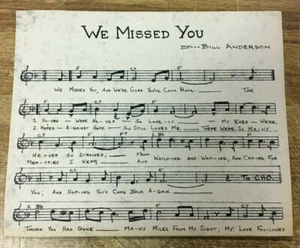 We Missed You
BY--- Bill Anderson
We Missed You, And We're Glad You've Come Home The
1 Hours Were Never So Lonely My Eyes Were
2 Hopes Against Hope You Still Loves Me There Were So Many
Never So Strained, From
Memories I Kept And Watching And Waiting, And Caring For
To CHO.
You, And Hoping You'd Come Back Again
Though You Had Gone Many Miles From My Sight, My Love Followed